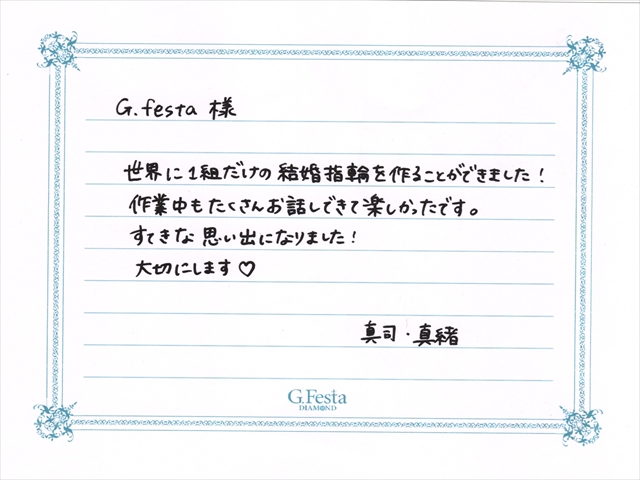 G.festa 様
世界に1組だけの結婚指輪を作ることができました！
作業中もたくさんお話しできて楽しかったです。
すてきな思い出になりました！
大切にします♡
真司・真緒
G.Festa
DIAMOND